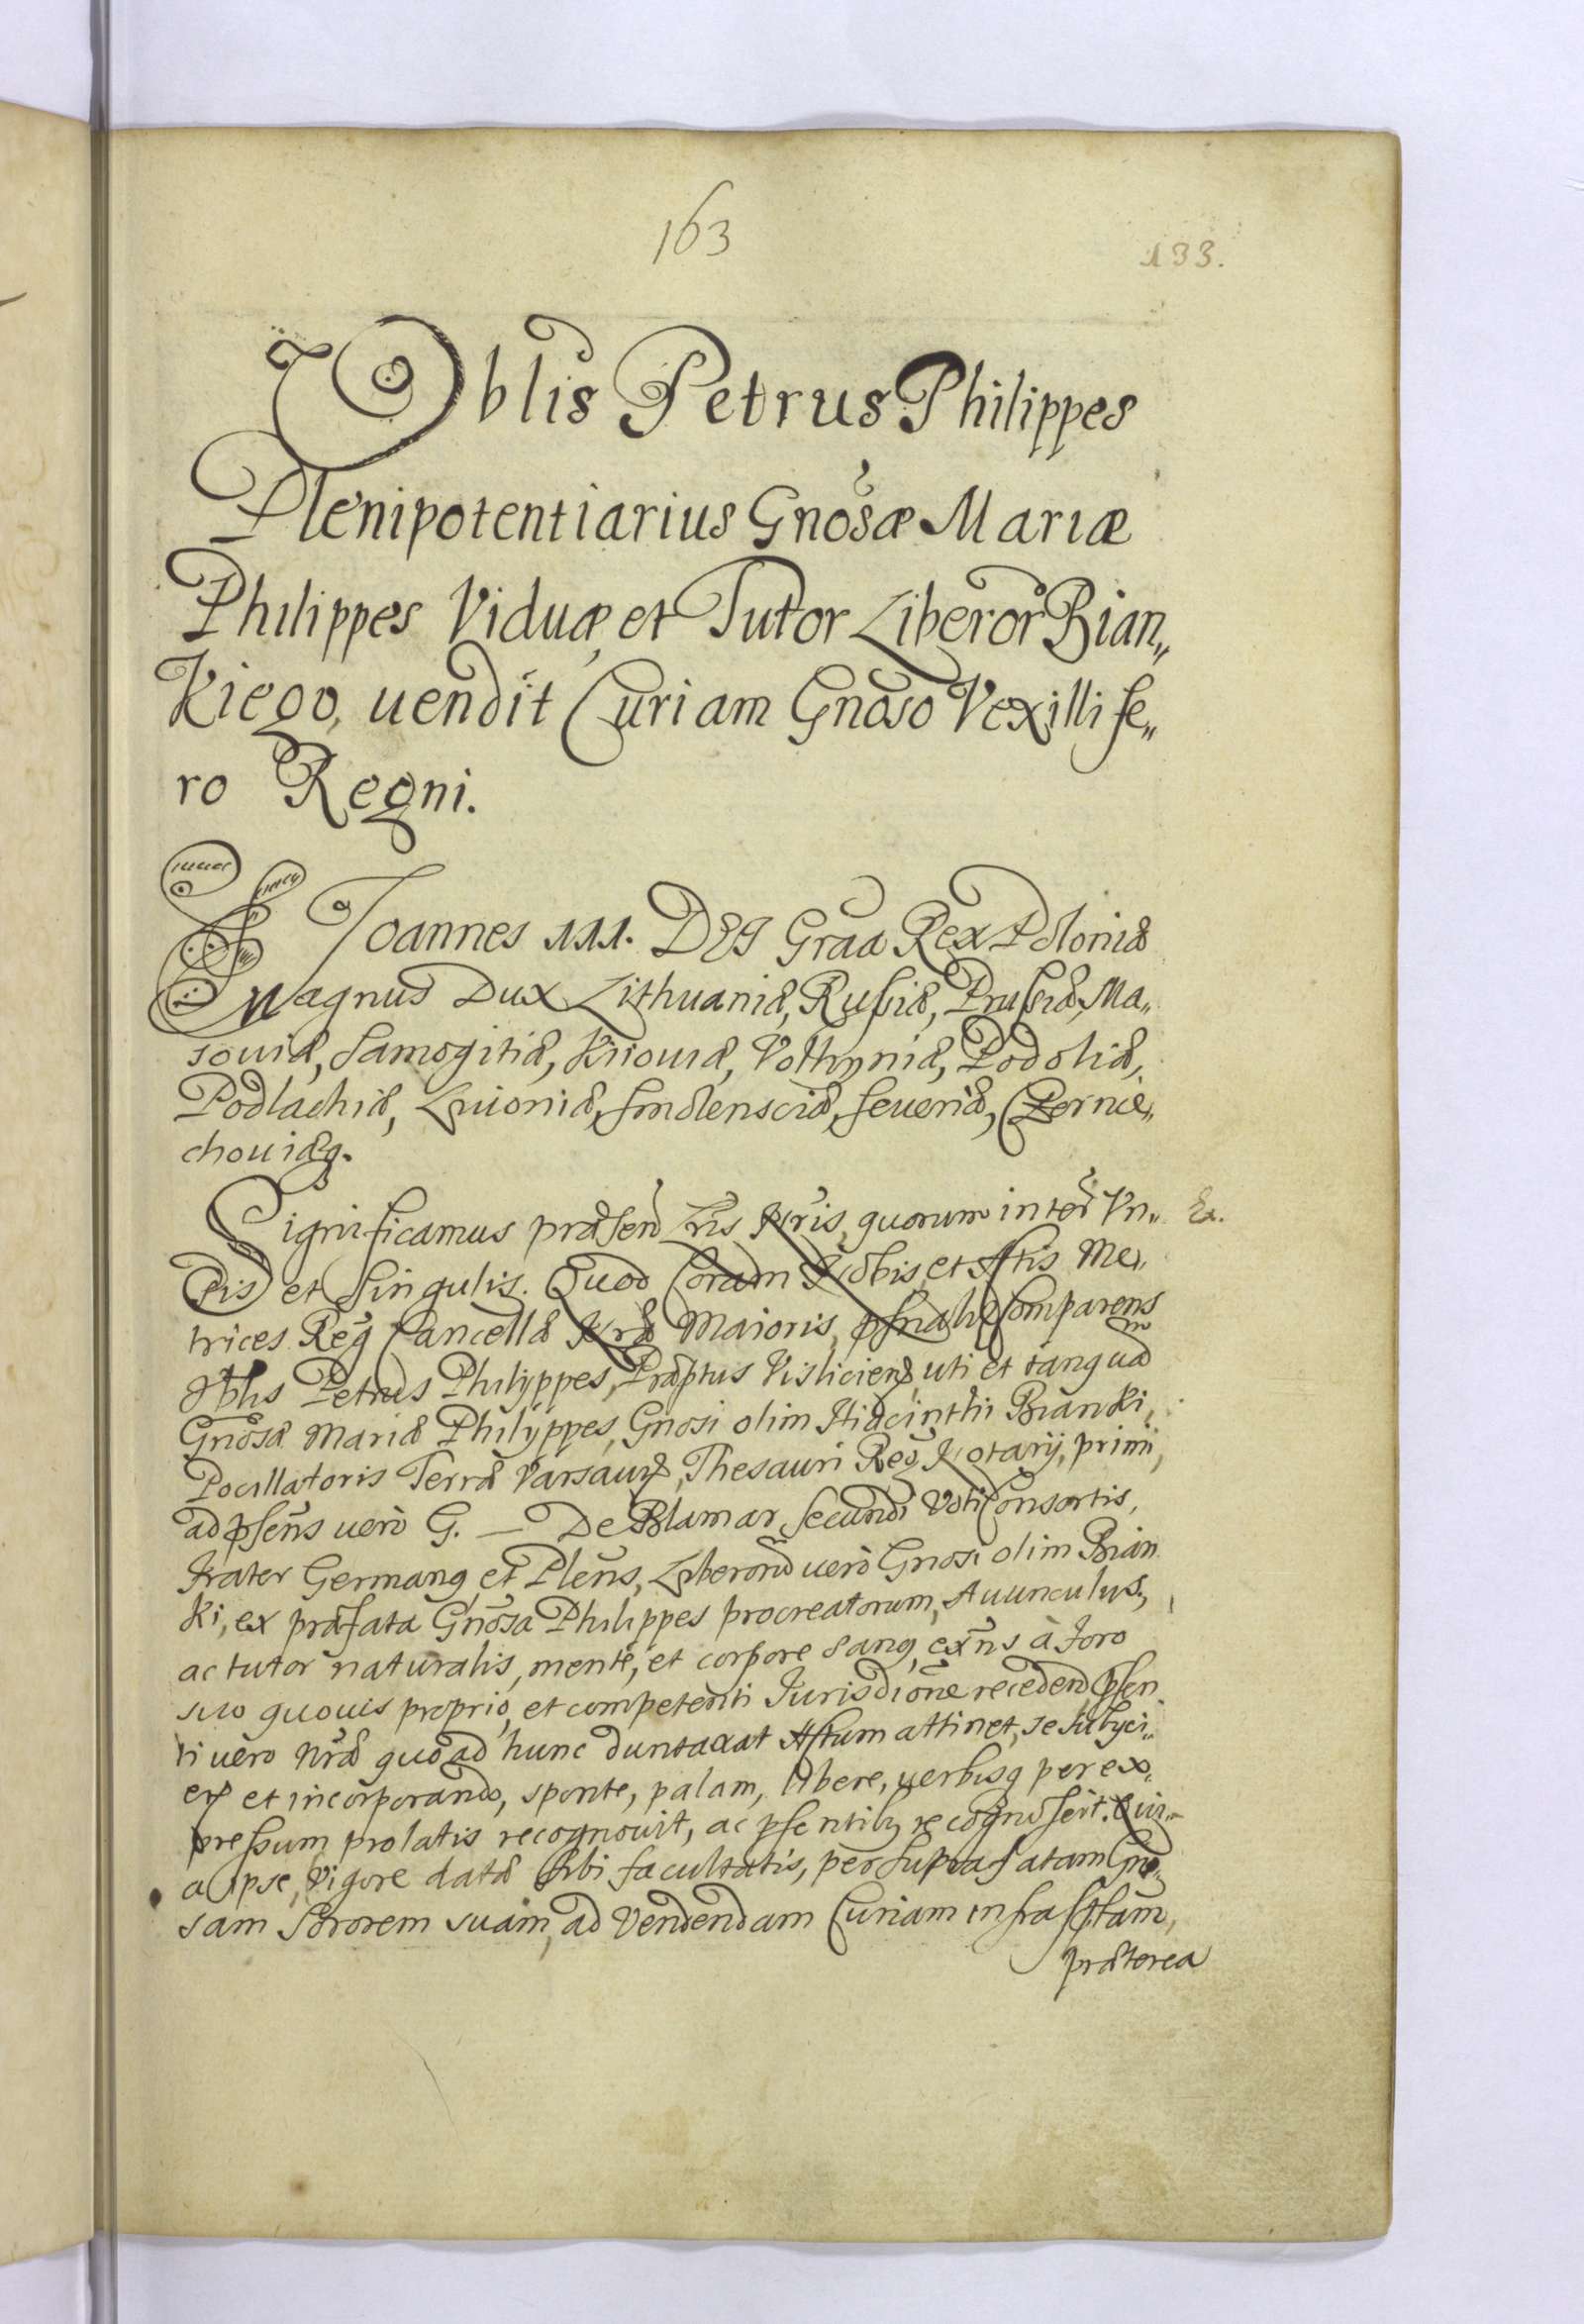 163
133.
Nblis Petrus Philippes
Plenipotentiarius Gnosæ Mariæ
Philippes Viduæ, et Tutor Liberor Bian„
Kiego, uendit Curiam Gnoso Vexillife„
ro Regni.
Joannes III. DEI Graa Rex Poloniæ
Magnus Dux Lithuaniæ, Rußiæ, Prußiæ, Ma„
souiæ, Samogitiæ, Kiiouiæ, Volhyniæ, Podoliæ,
Podlachiæ, Liuoniæ, Smolensciæ, Seueriæ, Czernie„
chouiæq.
Significamus præsen Lris Nris, quorum inter Vn„
Ex.
is et Singulis. Quod Coram Nobis, et Actis Me„
trices Reg Cancellæ Nræ Maioris, psnalr Comparens
Nblis Petrus Philyppes, Præptus Vislicien, uti et tanquā
Gnosæ Mariæ Philyppes, Gnosi olim Hiacinthi Bianki,
Pocillatoris Terræ Varsauien, Thesauri Reg Notarij, primi,
ad psens uerò G. — De Blamar, secundi Voti Consortis,
Frater Germanq, et Plens, Liberorū uerò Gnosi olim Bian
ki, ex præfata Gnosa Philippes procreatorum, Auunculus,
ac tutor naturalis, mente, et corpore sanq, exns à Foro
suo quouis proprio, et competenti Jurisdione recedend, psen
ti uero Nræ quoad hunc duntaxat Actum attinet, se subyci„
en et incorporando, sponte, palam, libere, uerbisq per ex„
preßum prolatis recognouit, ac psentibq recognoscit. Qui„
a ipse, Vigore datæ sibi facultatis, per suprafatam Gno„
sam Sororem suam, ad Vendendam Curiam infrasptam,
præterea